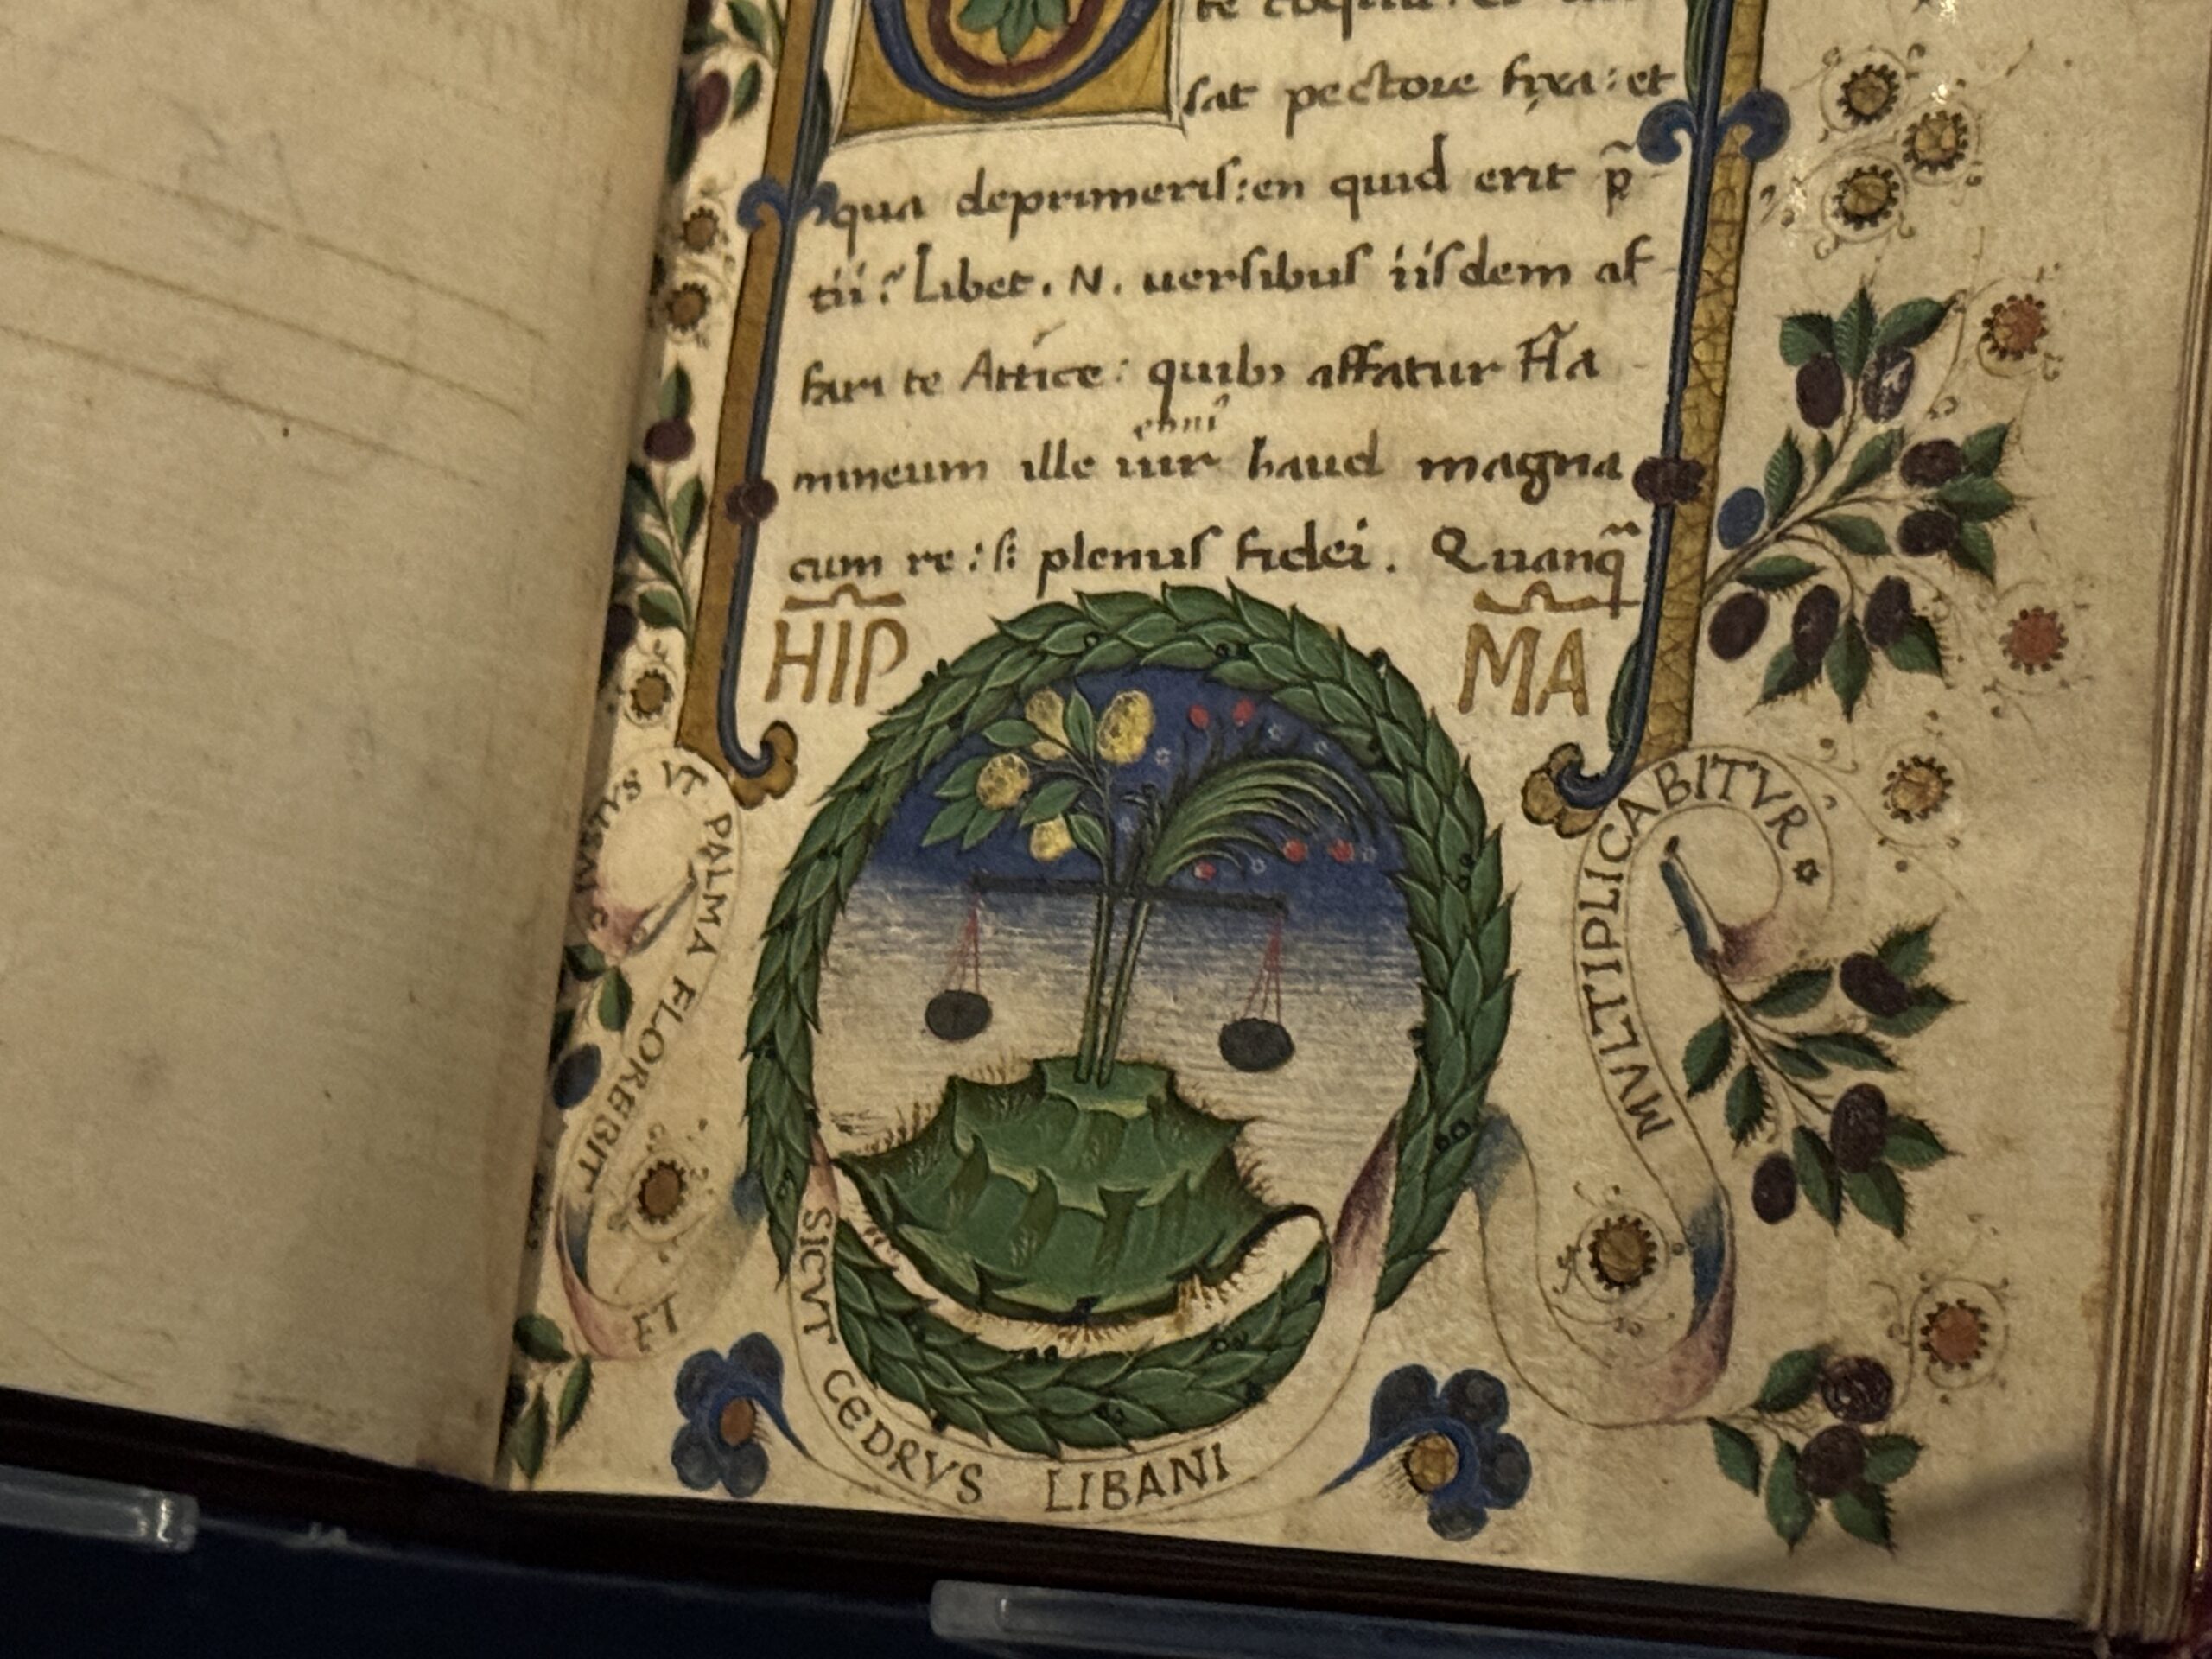 te coquit: et
sat pectore fixa: et
qua deprimeris: en quid erit p̃
tii? Libet. N. uersibus iisdem af
fari te Attice: quibꝫ affatur Fla
mineum ille uir haud magna
cum re: sꝫ plenus fidei. Quanq̃
HIP̃ MÃ
IVSTVS VT PALMA FLOREBIT
ET
SICVT CEDRVS LIBANI
MVLTIPLICABITVR